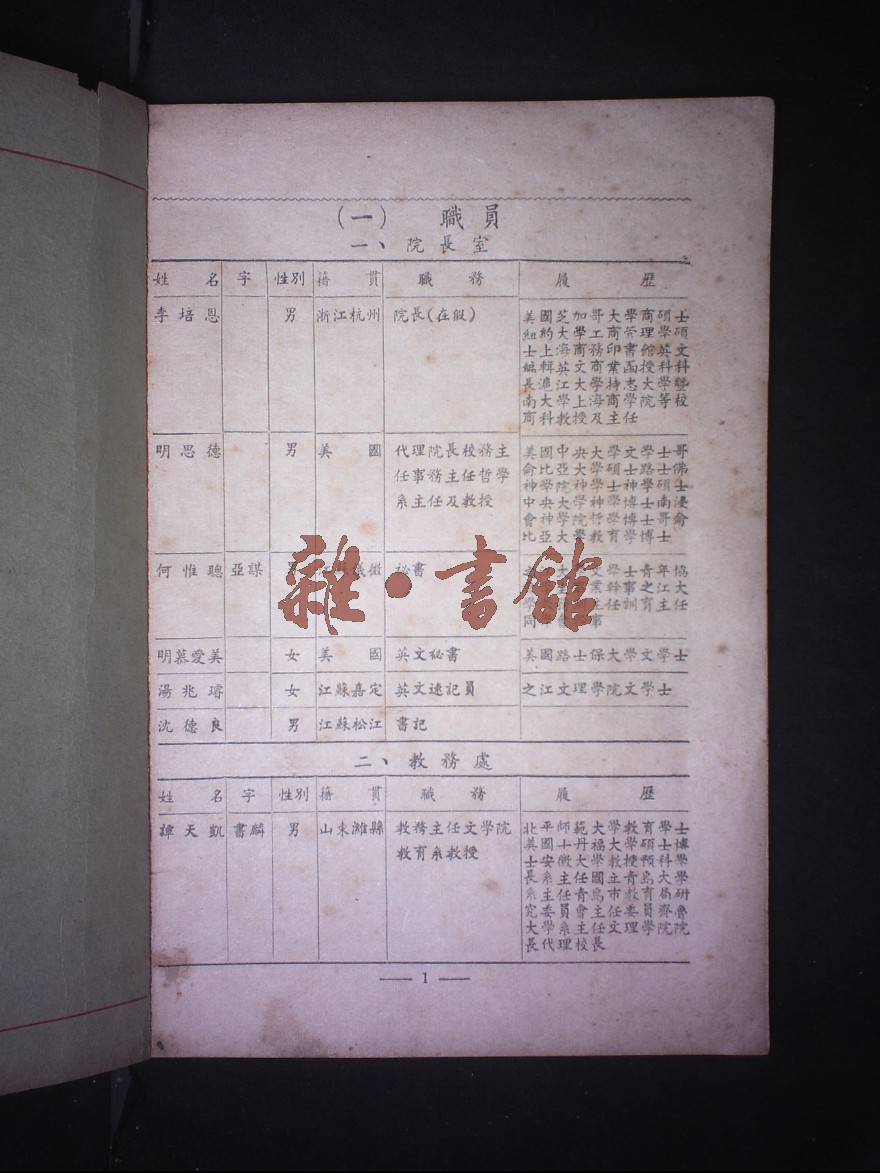 (一) 職員
一、院長室
姓名 字 性別 籍貫 職務 履歷
李培恩 男 浙江杭州 院長(在假) 美國芝加哥大學商碩士
紐約大學工商管理學碩
士上海商務印書館英文
編輯英文商業函授科科
長滬江大學持志大學暨
南大學上海商學院等校
商科教授及主任
明思德 男 美國 代理院長校務主 美國中央大學文學士哥
任事務主任哲學 侖比亞大學碩士路士佛
系主任及教授 神學院神學士神學碩士
中央大學神學博士南浸
會神學院哲學博士哥侖
比亞大學教育學博士
何惟聰 亞謀 男 江蘇儀徵 秘書
明慕愛美 女 美國 英文秘書 美國路士保大學文學士
湯兆璿 女 江蘇嘉定 英文速記員 之江文理學院文學士
沈德良 男 江蘇松江 書記
二、教務處
姓名 字 性別 籍貫 職務 履歷
譚天凱 書麟 男 山東濰縣 教務主任文學院 北平師範大學教育學士
教育系教授 美國士丹福學碩士博
士安徽大學教授預科學
長系主任國立青島大學
系主任青島市教育局研
究委員會主任委員齊魯
大學系主任文理學院院
長代理校長
— 1 —
雜·書館